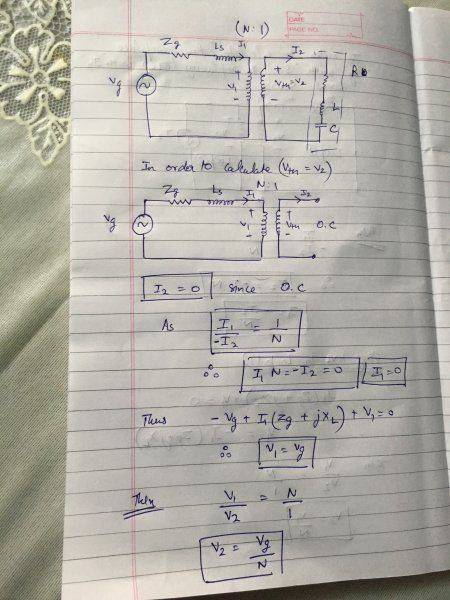 DATE
PAGE NO.
(N:1)
Zg Ls I1 I2
Vg V1 Vth=V2 R
L1
C1
In order to calculate (Vth = V2)
N:1
Zg Ls I1 I2
Vg V1 Vth O.C
I2 = 0 since O.C
As I1/-I2 = 1/N
∴ I1 N = -I2 = 0 I1 = 0
Thus - Vg + I1 (Zg + jXL) + V1 = 0
∴ V1 = Vg
Then V1/V2 = N/1
V2 = Vg/N